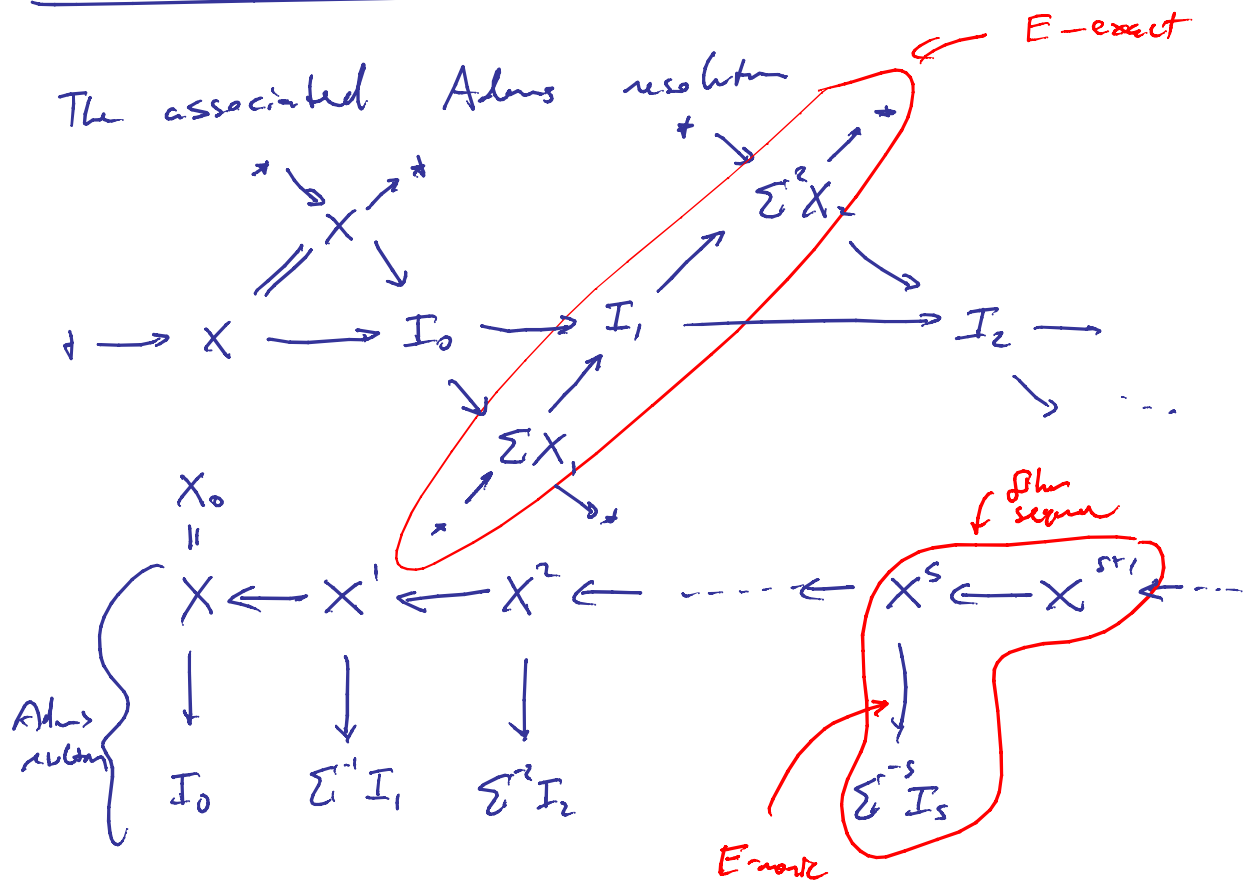 E-exact
The associated Adams resolution
* *
* *
X Σ²X₂
* → X → I₀ → I₁ → I₂ →
ΣX₁ ...
* *
X₀ fiber sequence
||
X ← X¹ ← X² ← ---- ← Xˢ ← Xˢ⁺¹ ← ...
Adams resolution
I₀ Σ⁻¹I₁ Σ⁻²I₂ Σ⁻ˢIₛ
E-monic